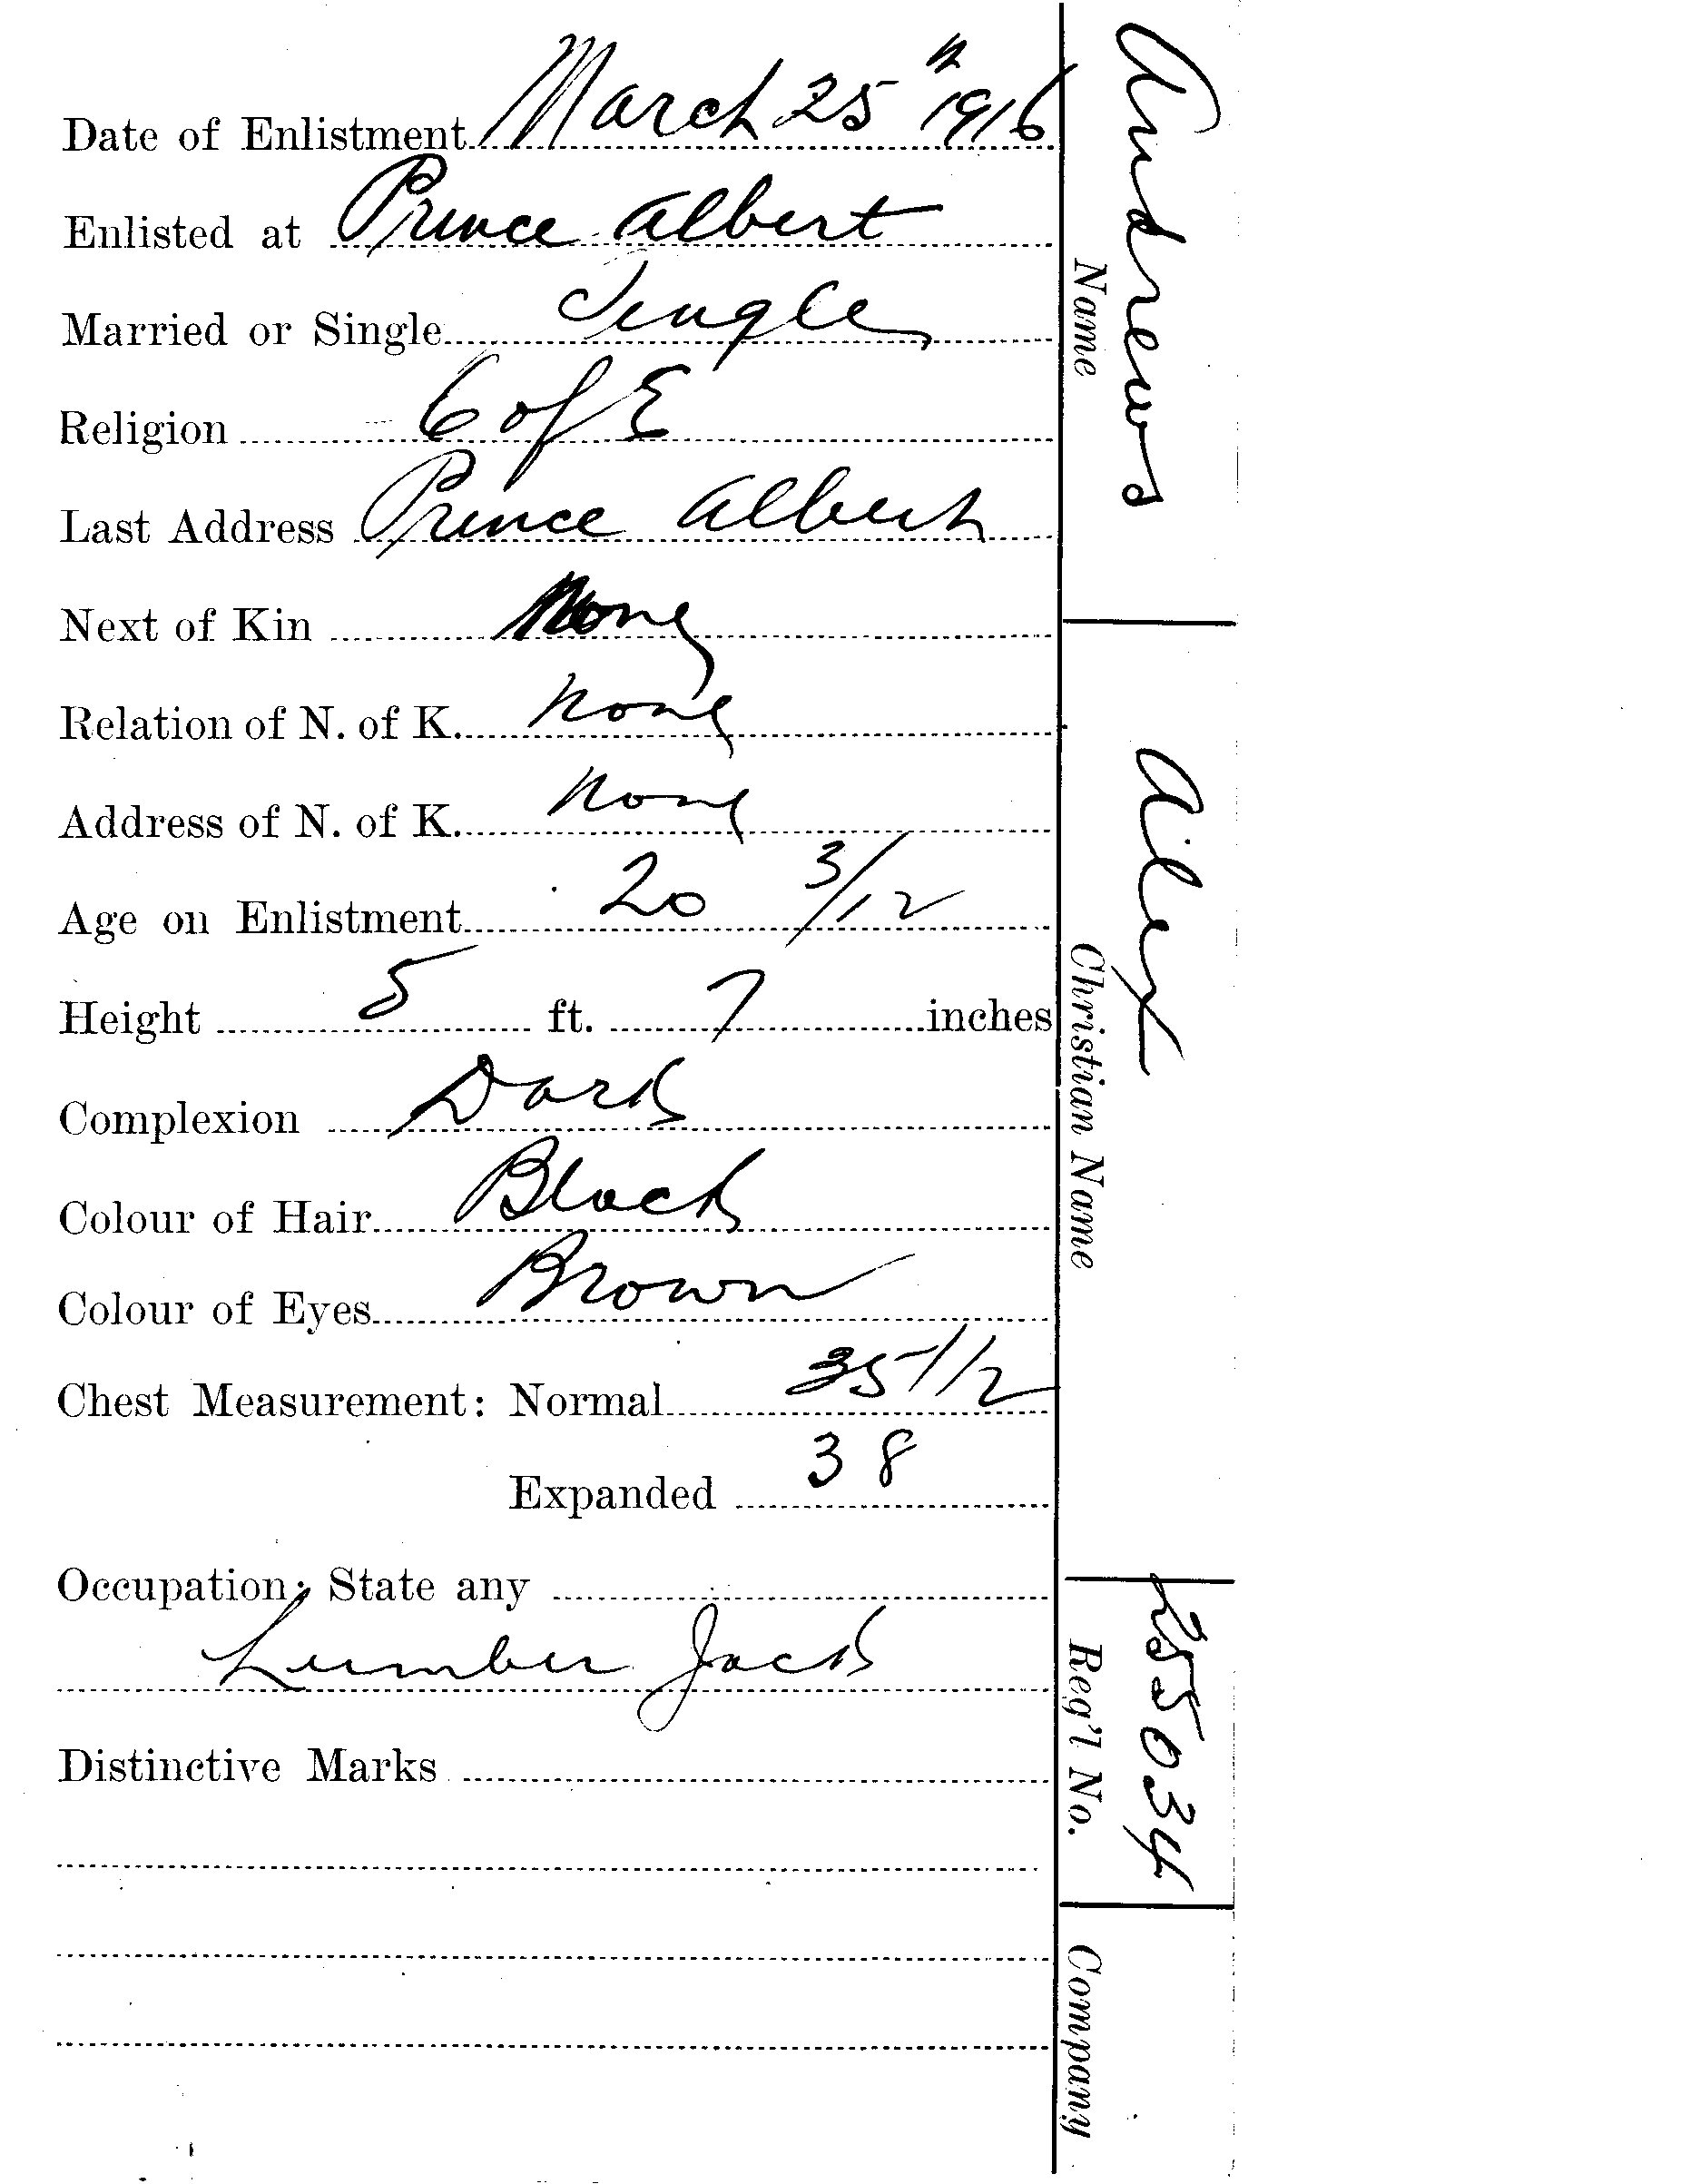 Date of Enlistment March 25th 1916
Enlisted at Prince Albert
Married or Single Single
Religion C of E
Last Address Prince Albert
Next of Kin None
Relation of N. of K. None
Address of N. of K. None
Age on Enlistment 20 3/12
Height 5 ft. 7 inches
Complexion Dark
Colour of Hair Black
Colour of Eyes Brown
Chest Measurement: Normal 35 1/2
Expanded 38
Occupation; State any
Lumber Jack
Distinctive Marks
Andrews
Name
Alex
Christian Name
255034
Reg'l No.
Company